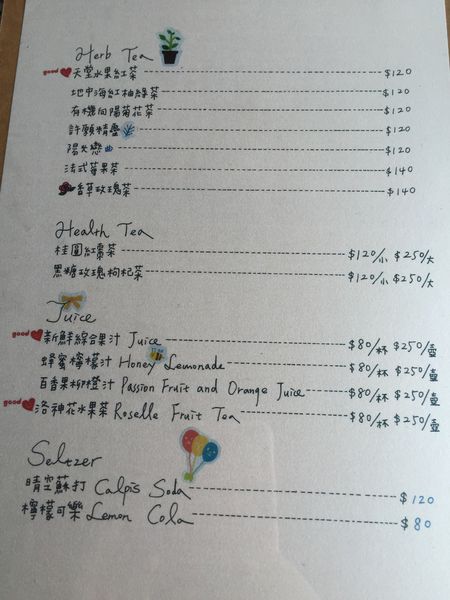 Herb Tea
good 天堂水果紅茶 $120
地中海紅柚綠茶 $120
有機向陽菊花茶 $120
許願精靈 $120
陽光戀曲 $120
法式莓果茶 $140
香草玫瑰茶 $140
Health Tea
桂圓紅棗茶 $120/小 $250/大
黑糖玫瑰枸杞茶 $120/小 $250/大
Juice
good 新鮮綜合果汁 Juice $80/杯 $250/壺
蜂蜜檸檬汁 Honey Lemonade $80/杯 $250/壺
百香果柳橙汁 Passion Fruit and Orange Juice $80/杯 $250/壺
good 洛神花水果茶 Roselle Fruit Tea $80/杯 $250/壺
Seltzer
晴空蘇打 Calpis Soda $120
檸檬可樂 Lemon Cola $80